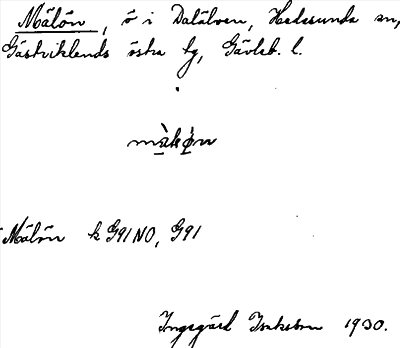 Målön, ö i Dalälven, Hedesunda sn,
Gästriklands östra tg, Gävleb. l.
Målön k G91 NO, G91
Ingegärd Isaksson 1930.